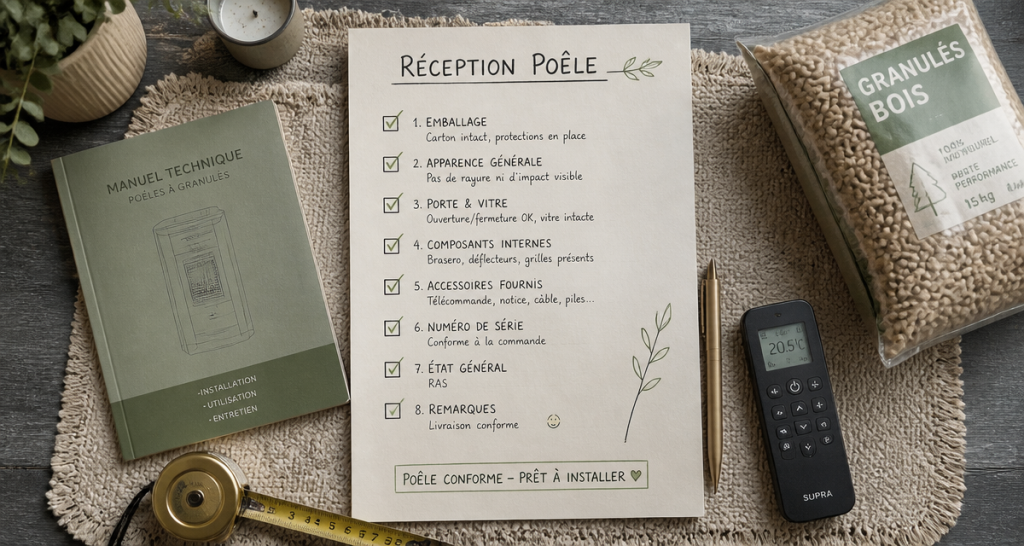 RÉCEPTION POÊLE
1. EMBALLAGE
Carton intact, protections en place
2. APPARENCE GÉNÉRALE
Pas de rayure ni d'impact visible
3. PORTE & VITRE
Ouverture/fermeture OK, vitre intacte
4. COMPOSANTS INTERNES
Brasero, déflecteurs, grilles présents
5. ACCESSOIRES FOURNIS
Télécommande, notice, câble, piles...
6. NUMÉRO DE SÉRIE
Conforme à la commande
7. ÉTAT GÉNÉRAL
RAS
8. REMARQUES
Livraison conforme
POÊLE CONFORME – PRÊT À INSTALLER
MANUEL TECHNIQUE
POÊLES À GRANULÉS
-INSTALLATION
-UTILISATION
-ENTRETIEN
GRANULÉS
BOIS
100%
PERFORMANCE
15 kg
20.5°C
SUPRA